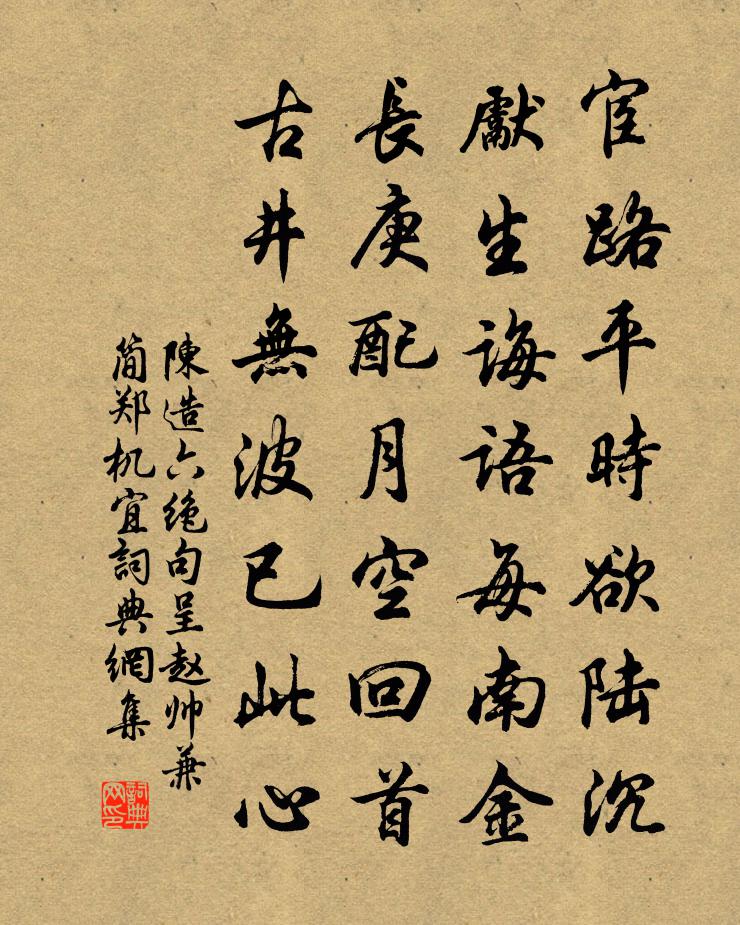 宦路平時欲陆沉
獻生誨語每南金
長庚配月空回首
古井無波已此心
陳造六绝句呈赵帅兼
简郑机宜詞典網集
詞典
网印